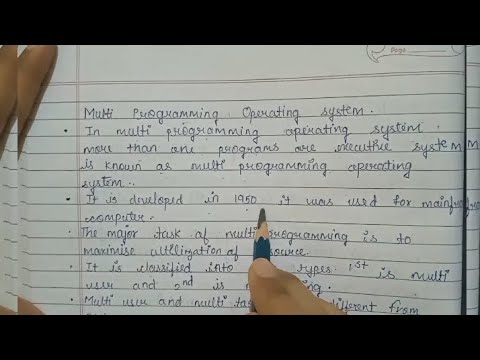 Page
Multi Programming Operating system.
• In multi programming operating system
more than one programs are executive system
is known as multi programming operating
system.
• It is developed in 1950 it was used for mainfra
computer.
• The major task of multi programming is to
maximise utllization of source.
• It is classified into types 1st is multi
user and 2nd is
• Multi user and multi different from